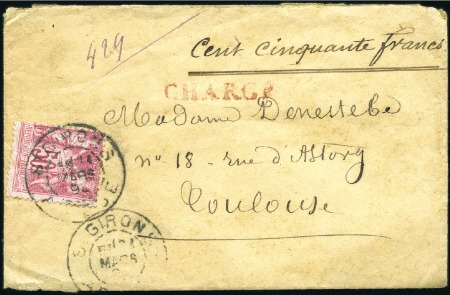 429
Cent cinquante francs
CHARGÉ
Madame Denessebe
n° 18 - rue d'Astorg
Toulouse
GIRONS
MARS
GIRONS
MARS